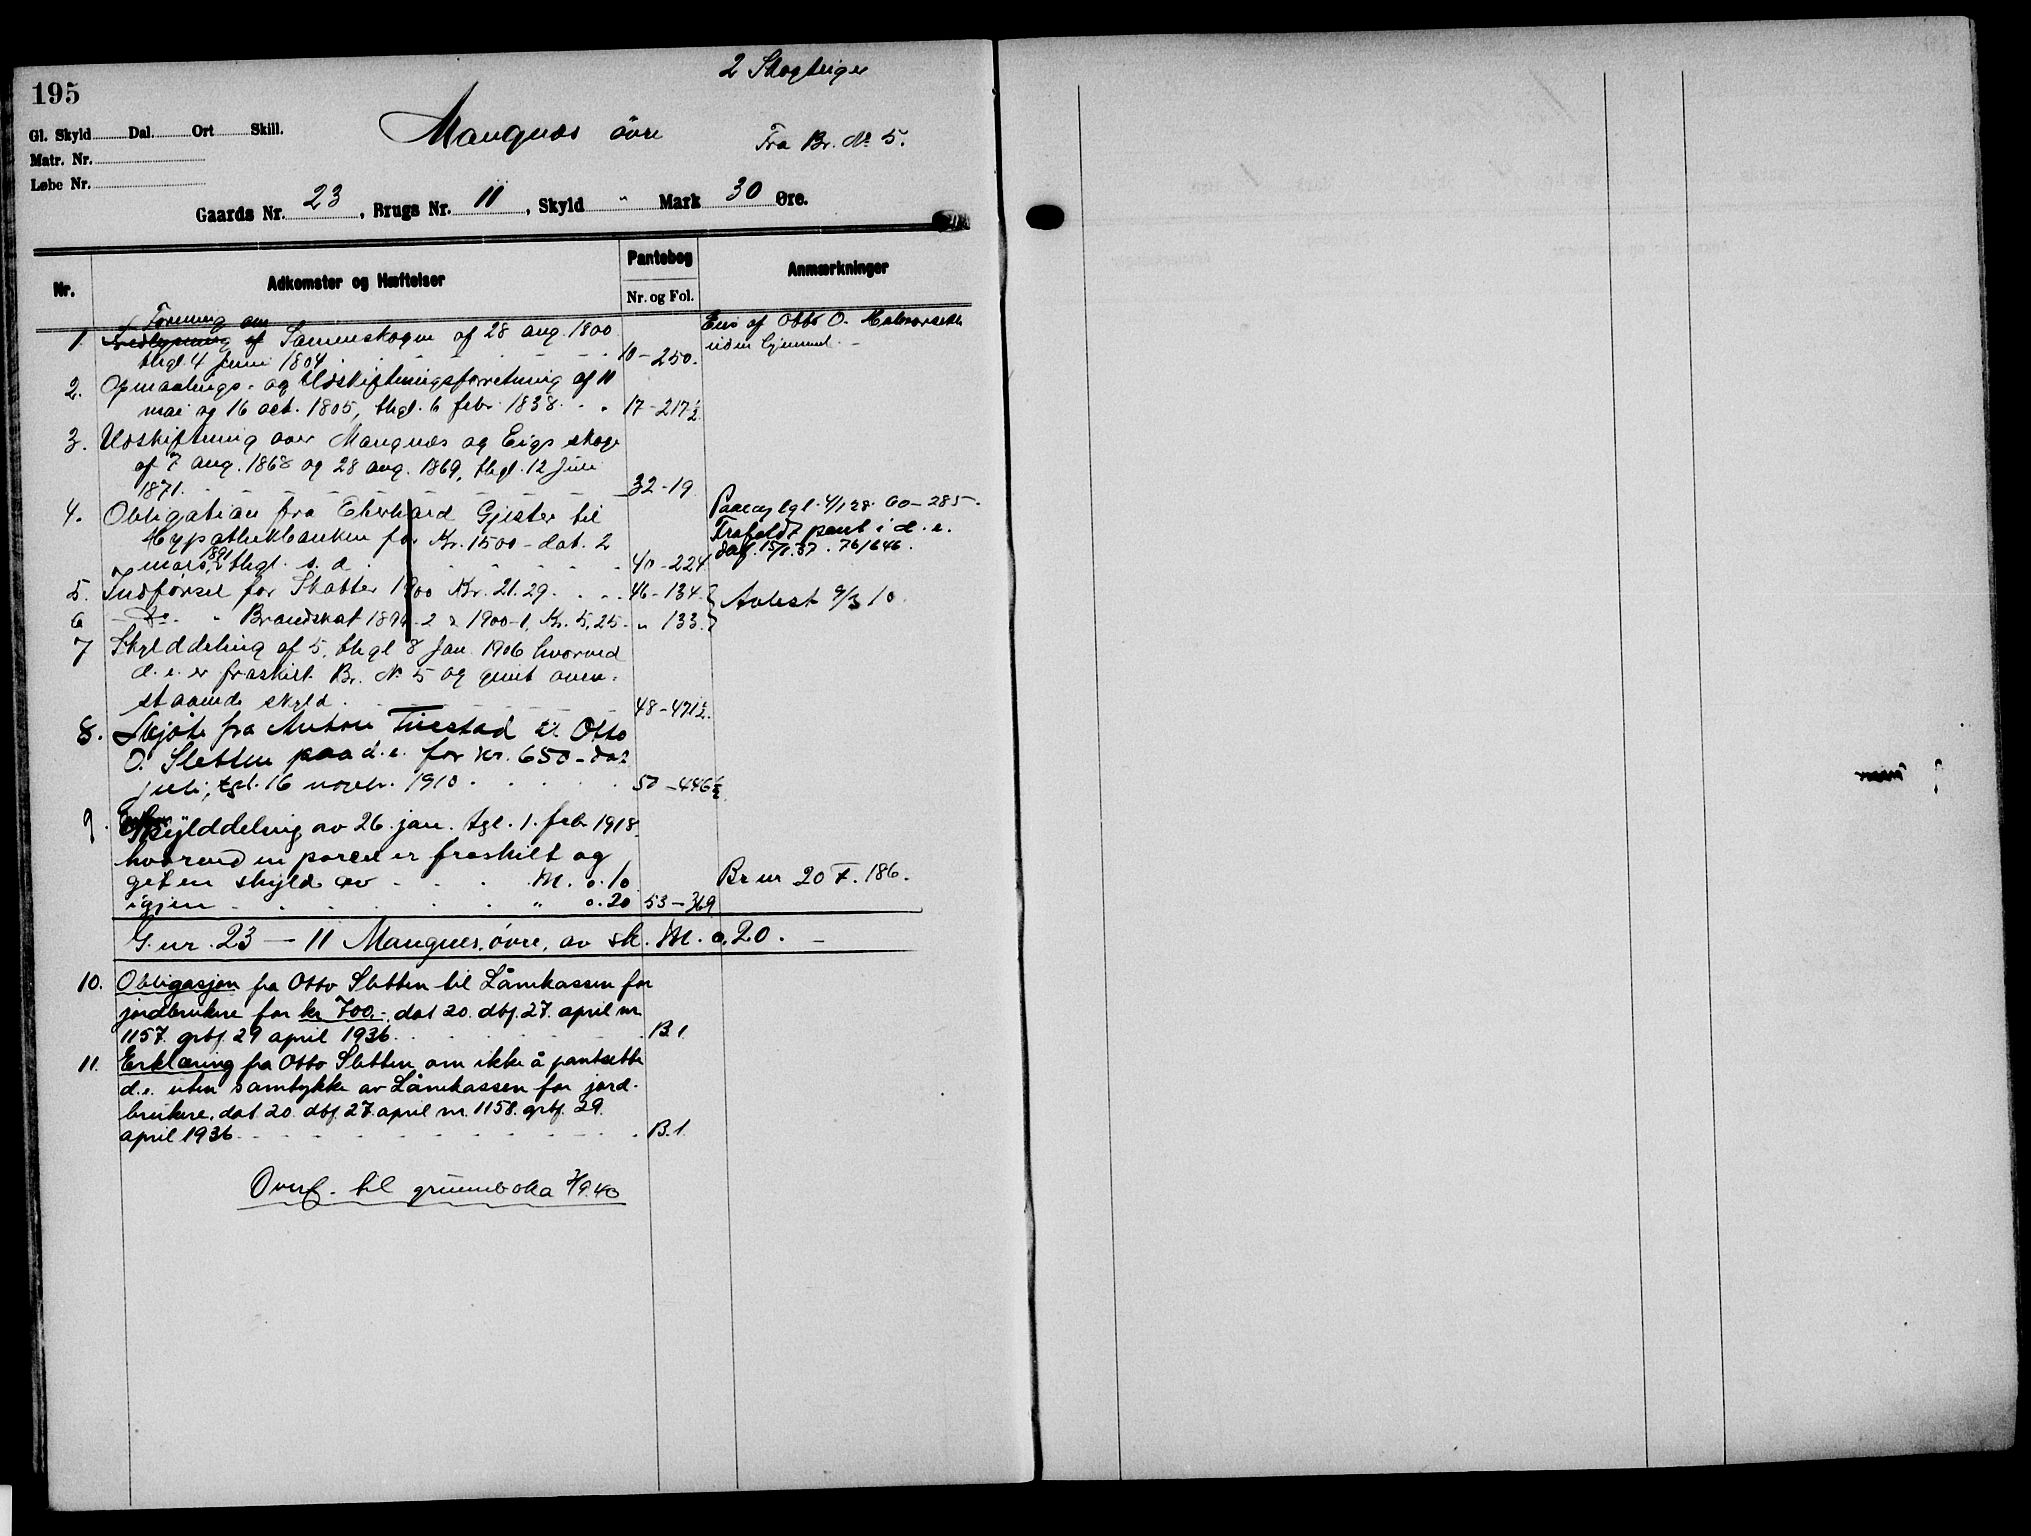 195
2 Skogteiger
Gl. Skyld Dal. Ort Skill.
Mangnæs øvre
Fra Br. No 5.
Matr. Nr.
Løbe Nr.
Gaards Nr. 23, Brugs Nr. 11, Skyld " Mark 30 Øre.
Nr. Adkomster og Hæftelser Pantebog Anmærkninger
Nr. og Fol.
Forening om
1. Fredlysning af Sameskogen af 28 aug. 1800
thgl. 4 Juni 1804 10-250.
Eies af Otto O.
uden hjemmel.
2. Opmaalings- og Udskiftningsforretning af 11
mai og 16 oct. 1805, thgl. 6 febr. 1838 17-217½
3. Udskiftning over Mangnæs og Eigs skoge
af 7 aug. 1868 og 28 aug. 1869, thgl. 12 Juli
1871. 32-19
4. Obligation fra Eberhard Gjester til
Hypothekbanken for Kr. 1500 - dat. 2
mars 1891, thgl. s. d. 40-224
tgl. 4/1 28. 60-285.
Frafaldt pant i d. e.
dat. 15/1.37. 76/646.
5. Indførsel for Skatter 1900 Kr. 21.29. 46-134.
6 - Do - " Brandskat 1891-2 & 1900-1, Kr. 5,25- " 133.
Avlest 9/3 10.
7 Skylddeling af 5, thgl 8 Jan. 1906 hvorved
d. e. er fraskilt Br. No 5 og givet oven-
staaende skyld. 48-471½.
8. Skjøte fra Anton Tuestad til Otto
O. Sletten paa d. e. for kr. 650 - dat
juli, tgl. 16 novbr. 1910. 50-446½
9. Skylddeling av 26. jan. tgl. 1. feb 1918
hvorved en parcel er fraskilt og
git en skyld av M. 0.10
Br nr 20 F. 186.
igjen " 0.20 53-369
G. nr. 23 - 11 Mangnes, øvre, av sk. M. 0,20. -
10. Obligasjon fra Otto Sletten til Lånekassen for
jordbrukere for kr 700.- dat 20. dbf. 27. april nr
1157. grbf. 29 april 1936. B.1.
11. Erklæring fra Otto Sletten om ikke å pantsette
d. e. uten samtykke av Lånekassen for jord-
brukere. dat 20. dbf. 27. april nr. 1158. grbf. 29.
april 1936. B.1.
Overf. til grunnboka 7/9.40